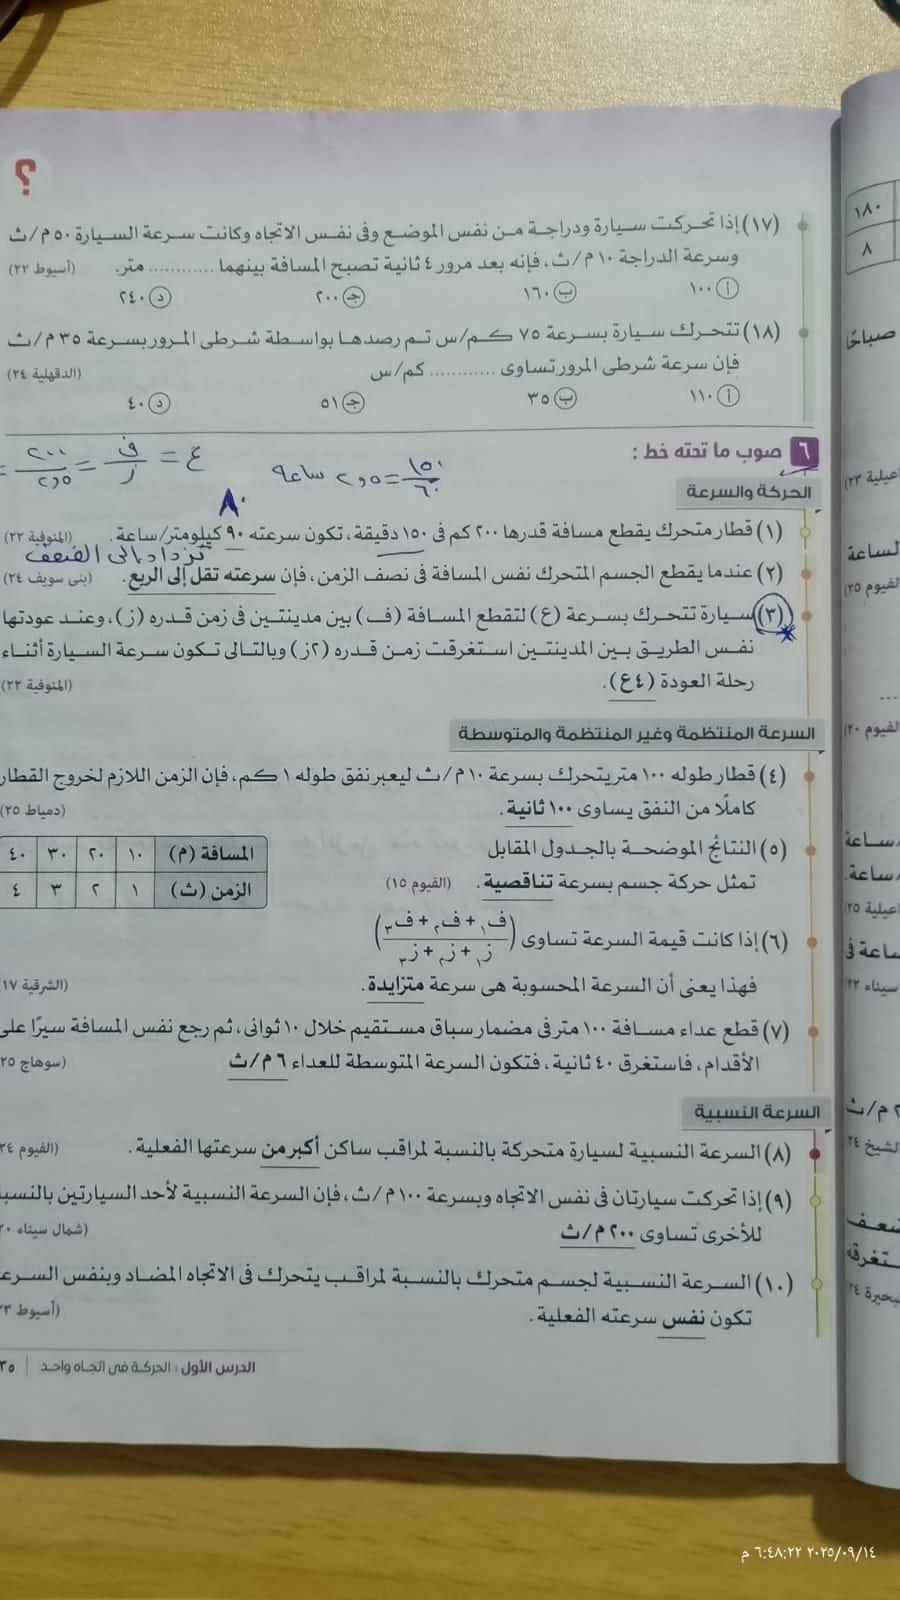 ؟
(١٧) إذا تحركت سيارة ودراجة من نفس الموضع وفى نفس الاتجاه وكانت سرعة السيارة ٥٠ م/ث
وسرعة الدراجة ١٠ م/ث، فإنه بعد مرور ٤ ثانية تصبح المسافة بينهما ............ متر. (أسيوط ٢٢)
أ ١٠٠ ب ١٦٠ ج ٢٠٠ د ٢٤٠
(١٨) تتحرك سيارة بسرعة ٧٥ كم/س تم رصدها بواسطة شرطى المرور بسرعة ٣٥ م/ث
فإن سرعة شرطى المرور تساوى ............ كم/س (الدقهلية ٢٤)
أ ١١٠ ب ٣٥ ج ٥١ د ٤٠
٦ صوب ما تحته خط :
١٥٠/٦٠ = ٢,٥ ساعة ع = ف/ز = ٢٠٠/٢,٥ =
الحركة والسرعة
٨٠
(١) قطار متحرك يقطع مسافة قدرها ٢٠٠ كم فى ١٥٠ دقيقة، تكون سرعته ٩٠ كيلومتر/ساعة. (المنوفية ٢٢)
تزداد إلى الضعف
(٢) عندما يقطع الجسم المتحرك نفس المسافة فى نصف الزمن، فإن سرعته تقل إلى الربع. (بنى سويف ٢٤)
(٣) سيارة تتحرك بسرعة (ع) لتقطع المسافة (ف) بين مدينتين فى زمن قدره (ز)، وعند عودتها
نفس الطريق بين المدينتين استغرقت زمن قدره (٢ز) وبالتالى تكون سرعة السيارة أثناء
رحلة العودة (٤ع). (المنوفية ٢٢)
السرعة المنتظمة وغير المنتظمة والمتوسطة
(٤) قطار طوله ١٠٠ متر يتحرك بسرعة ١٠ م/ث ليعبر نفق طوله ١ كم، فإن الزمن اللازم لخروج القطار
كاملًا من النفق يساوى ١٠٠ ثانية. (دمياط ٢٥)
(٥) النتائج الموضحة بالجدول المقابل
تمثل حركة جسم بسرعة تناقصية. (الفيوم ١٥)
المسافة (م) ١٠ ٢٠ ٣٠ ٤٠
الزمن (ث) ١ ٢ ٣ ٤
(٦) إذا كانت قيمة السرعة تساوى (ف١ + ف٢ + ف٣ / ز١ + ز٢ + ز٣)
فهذا يعنى أن السرعة المحسوبة هى سرعة متزايدة. (الشرقية ١٧)
(٧) قطع عداء مسافة ١٠٠ متر فى مضمار سباق مستقيم خلال ١٠ ثوانى، ثم رجع نفس المسافة سيرًا على
الأقدام، فاستغرق ٤٠ ثانية، فتكون السرعة المتوسطة للعداء ٦ م/ث (سوهاج ٢٥
السرعة النسبية
(٨) السرعة النسبية لسيارة متحركة بالنسبة لمراقب ساكن أكبر من سرعتها الفعلية. (الفيوم ٢٤
(٩) إذا تحركت سيارتان فى نفس الاتجاه وبسرعة ١٠٠ م/ث، فإن السرعة النسبية لأحد السيارتين بالنسبة
للأخرى تساوى ٢٠٠ م/ث (شمال سيناء ٢٠
(١٠) السرعة النسبية لجسم متحرك بالنسبة لمراقب يتحرك فى الاتجاه المضاد وبنفس السرعة
تكون نفس سرعته الفعلية. (أسيوط ٢٣
الدرس الأول : الحركة فى اتجاه واحد | ٣٥
١٨٠
٨
صباحًا
لساعة
الفيوم ٢٥
الفيوم ٢٠
م/ث
٢٠٢٥/٠٩/١٤ ٦:٤٨:٢٢ م